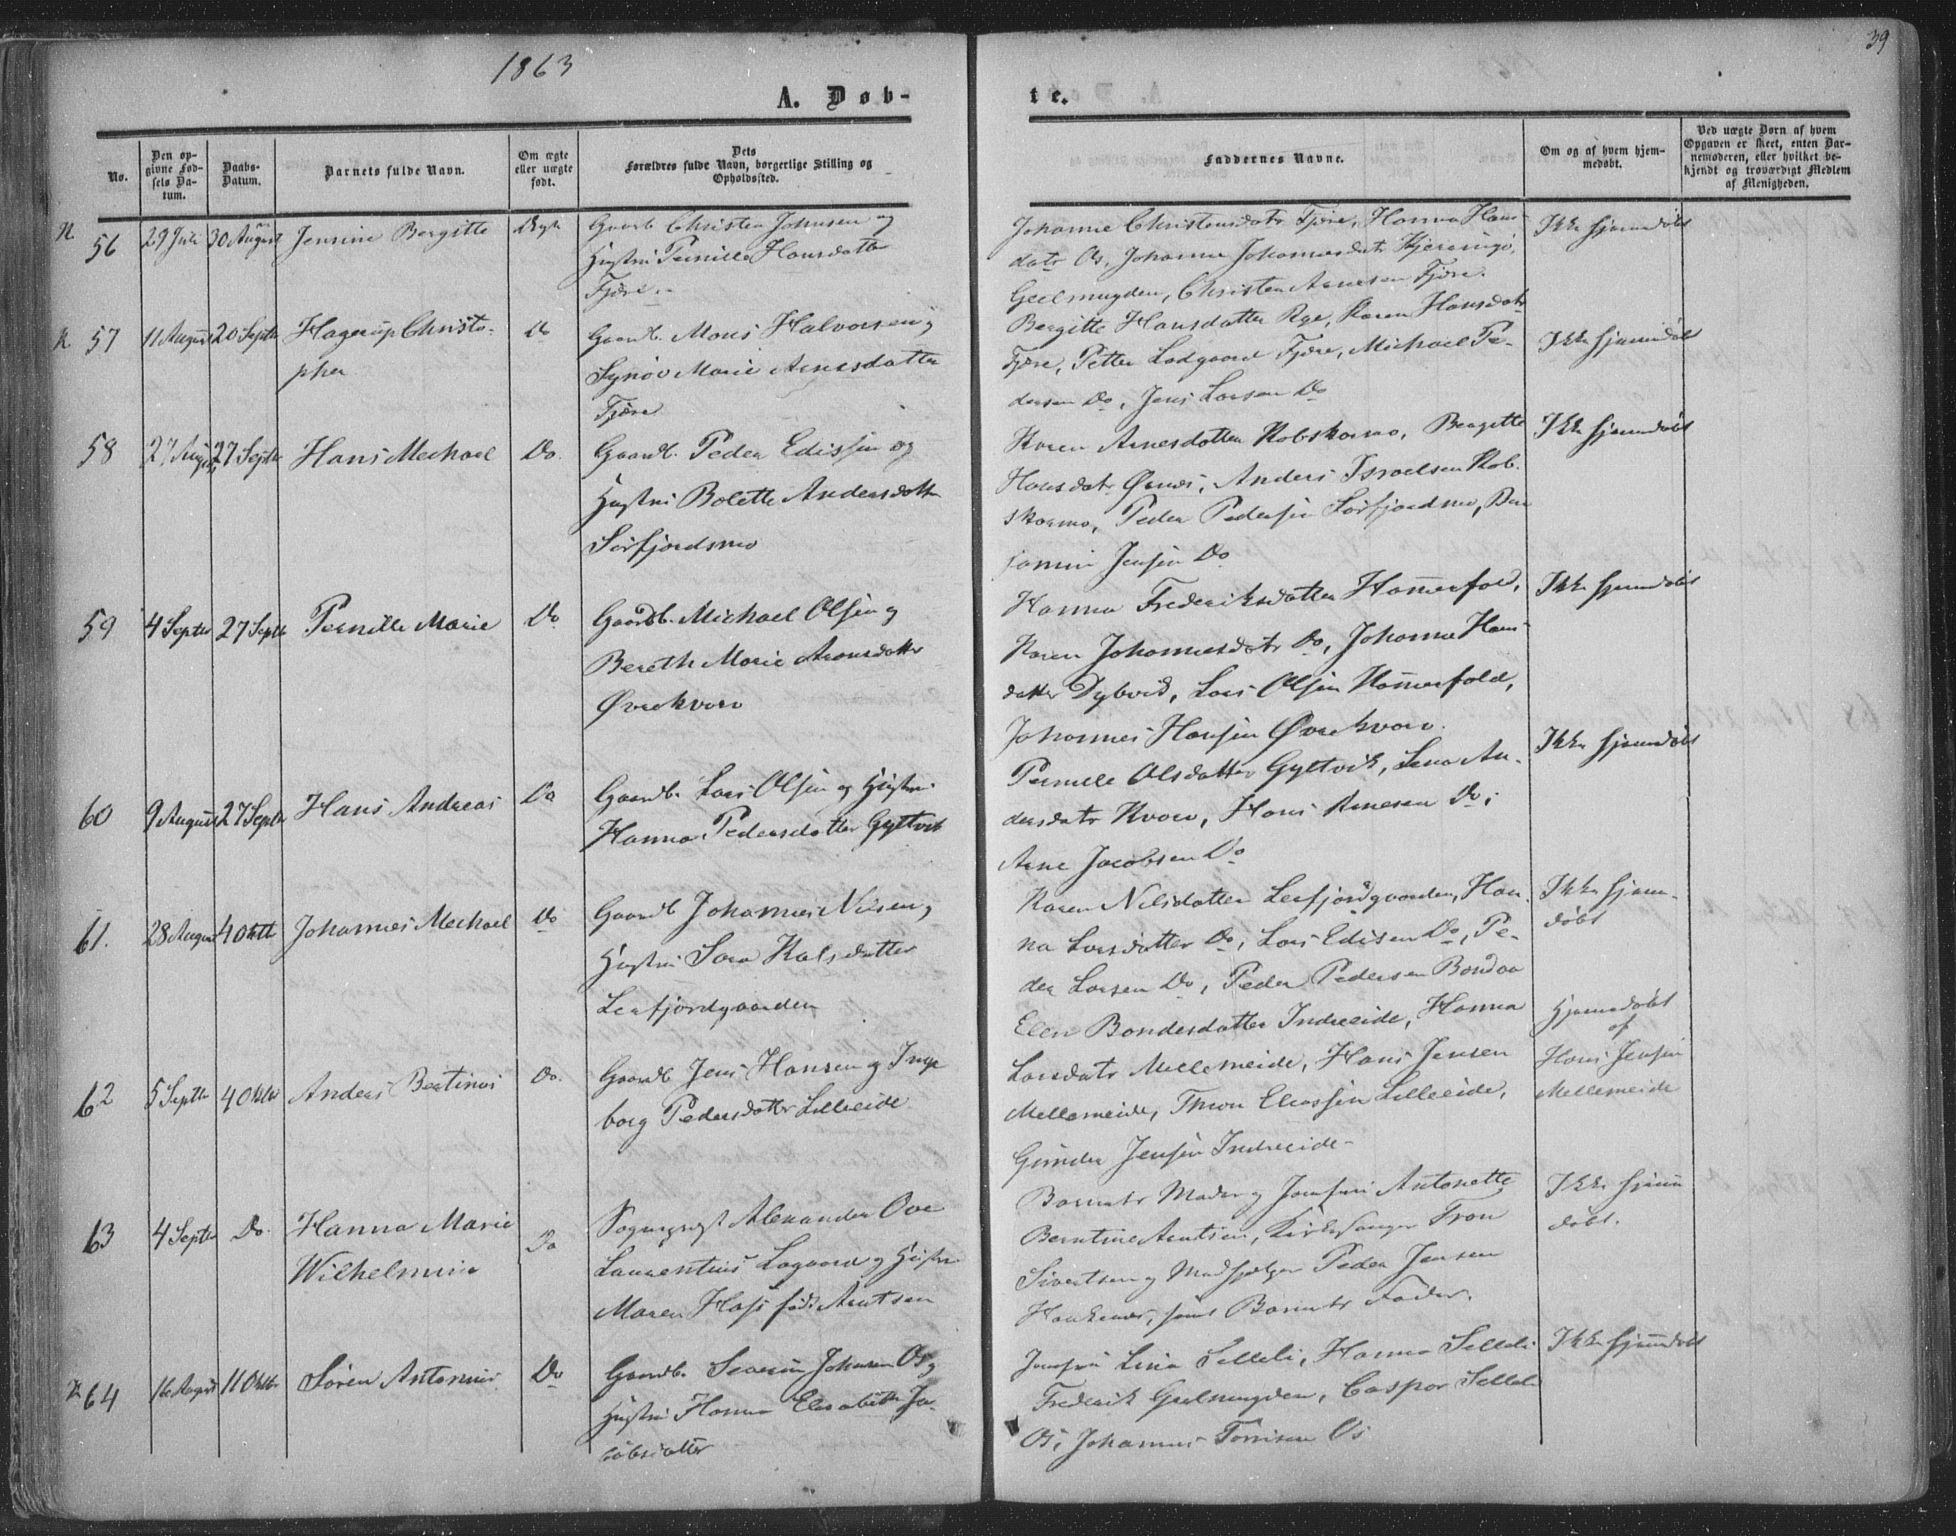 1863
39
A. Døb-
te.
No.
Den op-
givne Fød-
sels Da-
tum.
Daabs-
Datum.
Barnets fulde Navn.
Om ægte
eller uægte
født.
Dets
Forældres fulde Navn, borgerlige Stilling og
Opholdssted.
Faddernes Navne.
Om og af hvem hjem-
medøbt.
Ved uægte Børn af hvem
Opgaven er skeet, enten Bar-
nemoderen, eller hvilket be-
kjendt og troværdigt Medlem
af Menigheden.
N 56 29 Juli 30 August Jensine Bergitte Ægte
Gaardb Christen Johnsen og
Hustri Pernille Hansdatter
Fjøre.
Johanne Christensdatr Fjøre, Hanna Hans
datr Os, Johanna Johannesdatr Kjeringø,
Geelmuyden, Christen Arnesen Fjøre.
Ikke hjemdøbt
57 11 August 20 Septbr Hagerup Christo-
pher
Do
Gaardb. Mons Halvorsen og
Synøv Marie Arnesdatter
Fjøre
Bergitte Hansdatter Rye, Karen Hansdatr
Fjøre, Petter Lødgaard Fjøre, Michael Pe-
dersen Do, Jens Larsen Do
Ikke hjemdøbt
58 27 August 27 Septbr Hans Mechael Do.
Gaardb. Peder Edissen og
Hustri Bolette Andersdatter
Sørfjordsmo
Karen Arnesdatter Kobskarmo, Bergitte
Hansdatr Øsnes, Anders Israelsen Kob.
skarmo, Peder Pedersen Sørfjordmo, Ben
jamin Jensen Do
Ikke hjemdøbt
59 4 Septbr 27 Septb Pernille Marie Do
Gaardb. Michael Olsen og
Bereth Marie Aronsdatter
Øvrekvarv
Hanna Frederiksdatter Hamerfold,
Karen Johannesdatr Do, Johanna Hans
datter Dybvik, Lars Olsen Hamerfold,
Johannes Hansen Øvrekvarv.
Ikke hjemdøbt
60 9 August 27 Septbr Hans Andreas Do
Gaardb. Lars Olsen og Hustri
Hanna Pedersdatter Gyltvik
Pernille Olsdatter Gyltvik, Lena An-
dersdatr Kvarv, Hans Arnesen Do,
Arne Jacobsen Do
Ikke hjemdøbt
61. 28 August 4 Oktb Johannes Mechael Do
Gaardb Johannes Nilsen og
Hustri Sara Kalsdatter
Leerfjordgaarden
Karen Nilsdatter Leerfjordgaarden, Han
na Larsdatter Do, Lars Edisen Do, Pe-
der Larsen Do, Peder Pedersen Bondaa
Ikke hjem-
døbt
62 5 Septbr 4 Oktbr Anders Bertinus Do.
Gaardb Jens Hansen og Inge
borg Pedersdatter Lilleeide
Elen Bondesdatter Indreeide, Hanna
Larsdatr Mellemeide, Hans Jensen
Mellemeide, Thron Eliassen Lilleeide,
Gunder Jensen Indreeide
Hjemdøbt
af
Hans Jensen
Mellemeide
63 4 Septbr Do. Hanna Marie
Wilhelmine
Do
Sognepræst Alexander Ove
Laurentius Lagaard og Hustri
Maren Hass født Arntsen
Barnets Moder og Jomfru Antonette
Berntine Arntsen, Kirkesanger Tron
Sivertsen og Medhjelper Peder Jensen
samt Barnets Fader.
Ikke hjem
døbt.
64 16 August 11 Oktbr Søren Antonius Do
Gaardb. Severin Johnsen Os og
Hustri Hanna Elisabeth Ja-
cobsdatter
Jomfru Lina Selleli, Hanna Selleli
Frederik Geelmuyden, Caspar Selleli
Os, Johannes Tønnisen Os
Ikke hjemdøbt